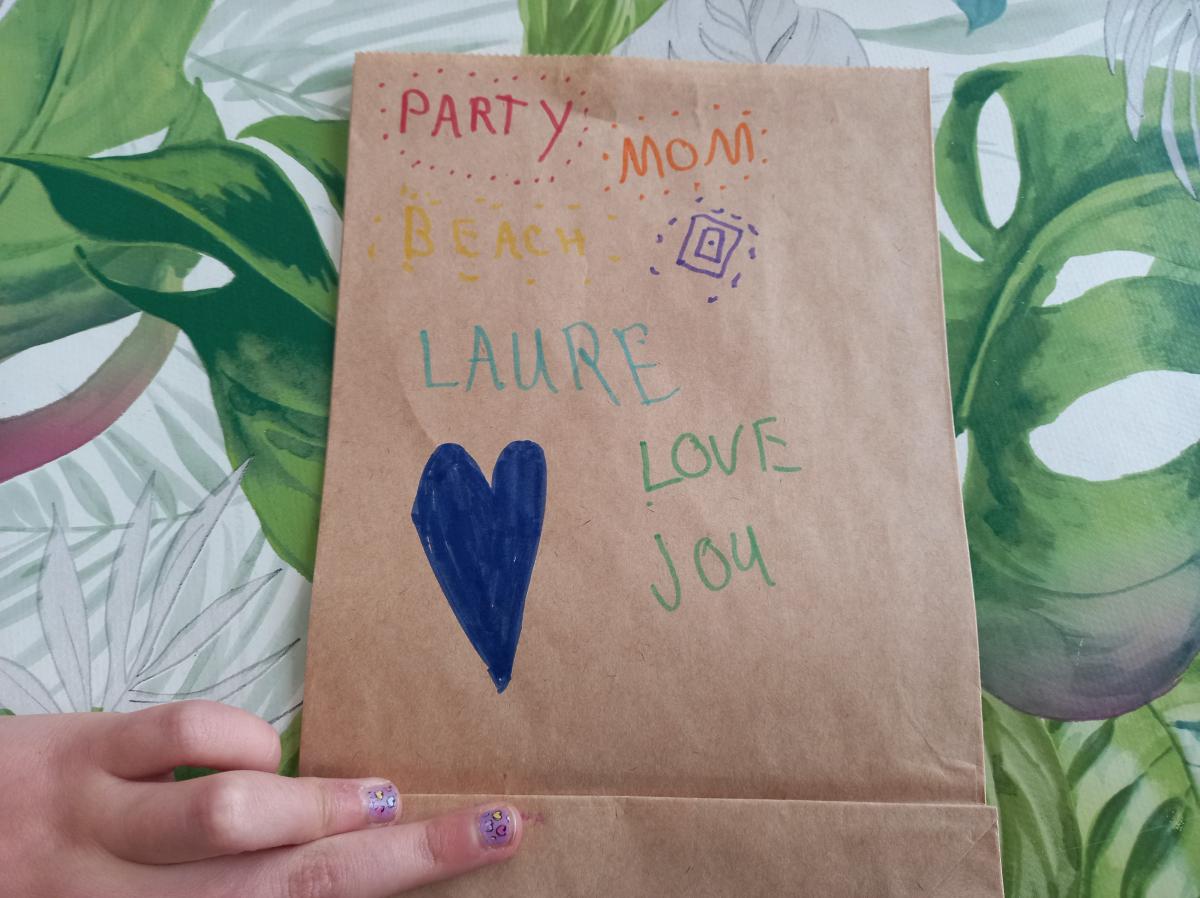 PARTY
MOM
BEACH
LAURE
LOVE
JOY